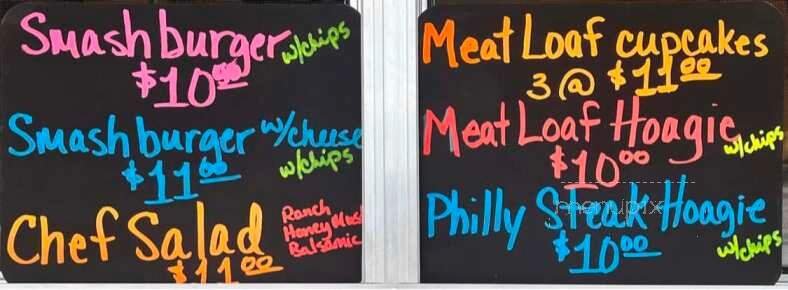 Smashburger w/chips
$10.00
Smashburger w/cheese
$11.00 w/chips
Chef Salad
$11.00
Ranch
Honey Must
Balsamic
Meat Loaf cupcakes
3 @ $11.00
Meat Loaf Hoagie
$10.00 w/chips
Philly Steak Hoagie
$10.00 w/chips
menupix